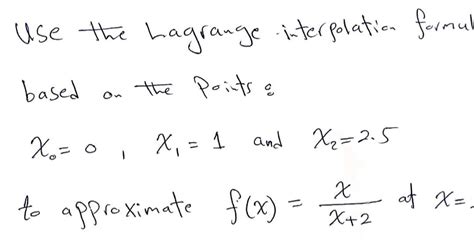 Use the Lagrange interpolation formul
based on the Points :
X₀ = 0 , X₁ = 1 and X₂ = 2.5
to approximate f(x) = x/(x+2) at x=